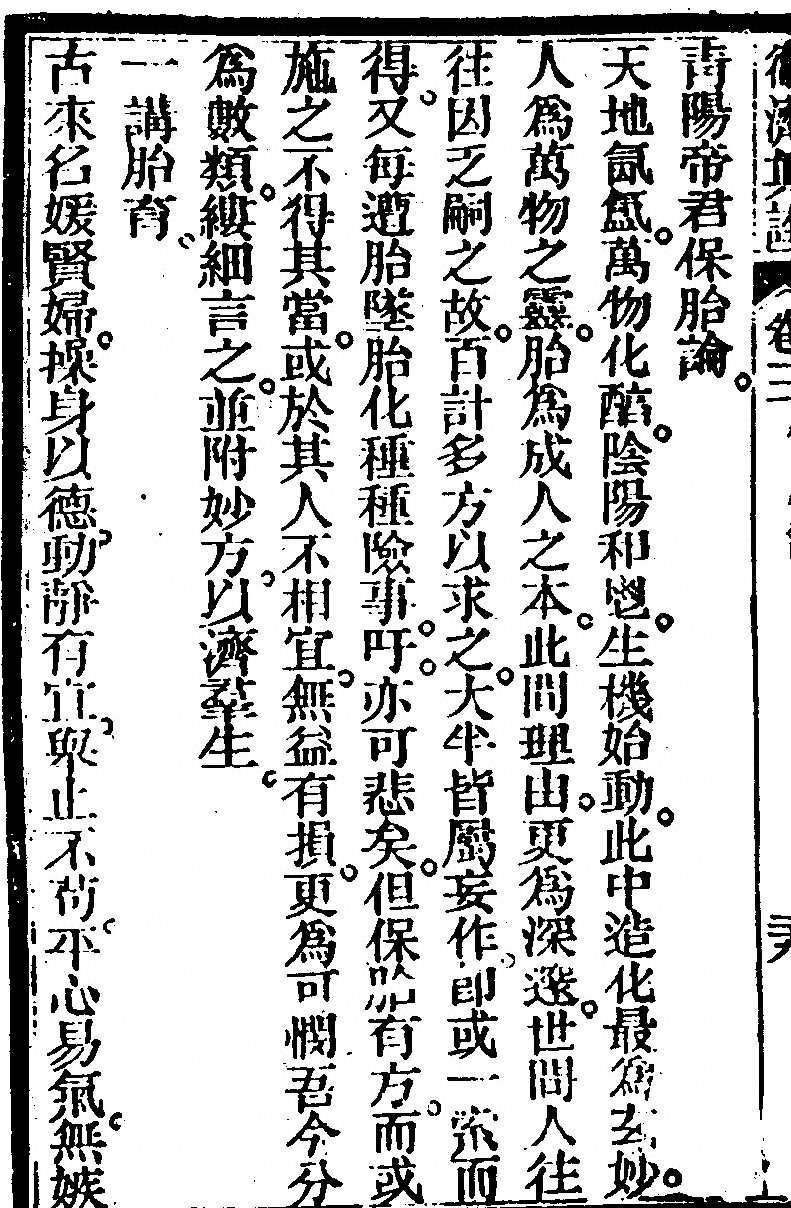 卷三
青陽帝君保胎論。
天地氤氳。萬物化醕。陰陽和鬯。生機始動。此中造化最爲玄妙。
人爲萬物之靈。胎爲成人之本。此間理由。更爲深邃。世間人往
往因乏嗣之故。百計多方以求之。大半皆屬妄作。卽或一索而
得。又每遭胎墜胎化種種險事。吁。亦可悲矣。但保胎有方。而或
施之不得其當。或於其人不相宜。無益有損。更爲可憫吾今分
爲數類。縷細言之。並附妙方。以濟羣生。
一講胎育。
古來名媛賢婦。操身以德。動靜有宜。與止不苟。平心易氣。無嫉